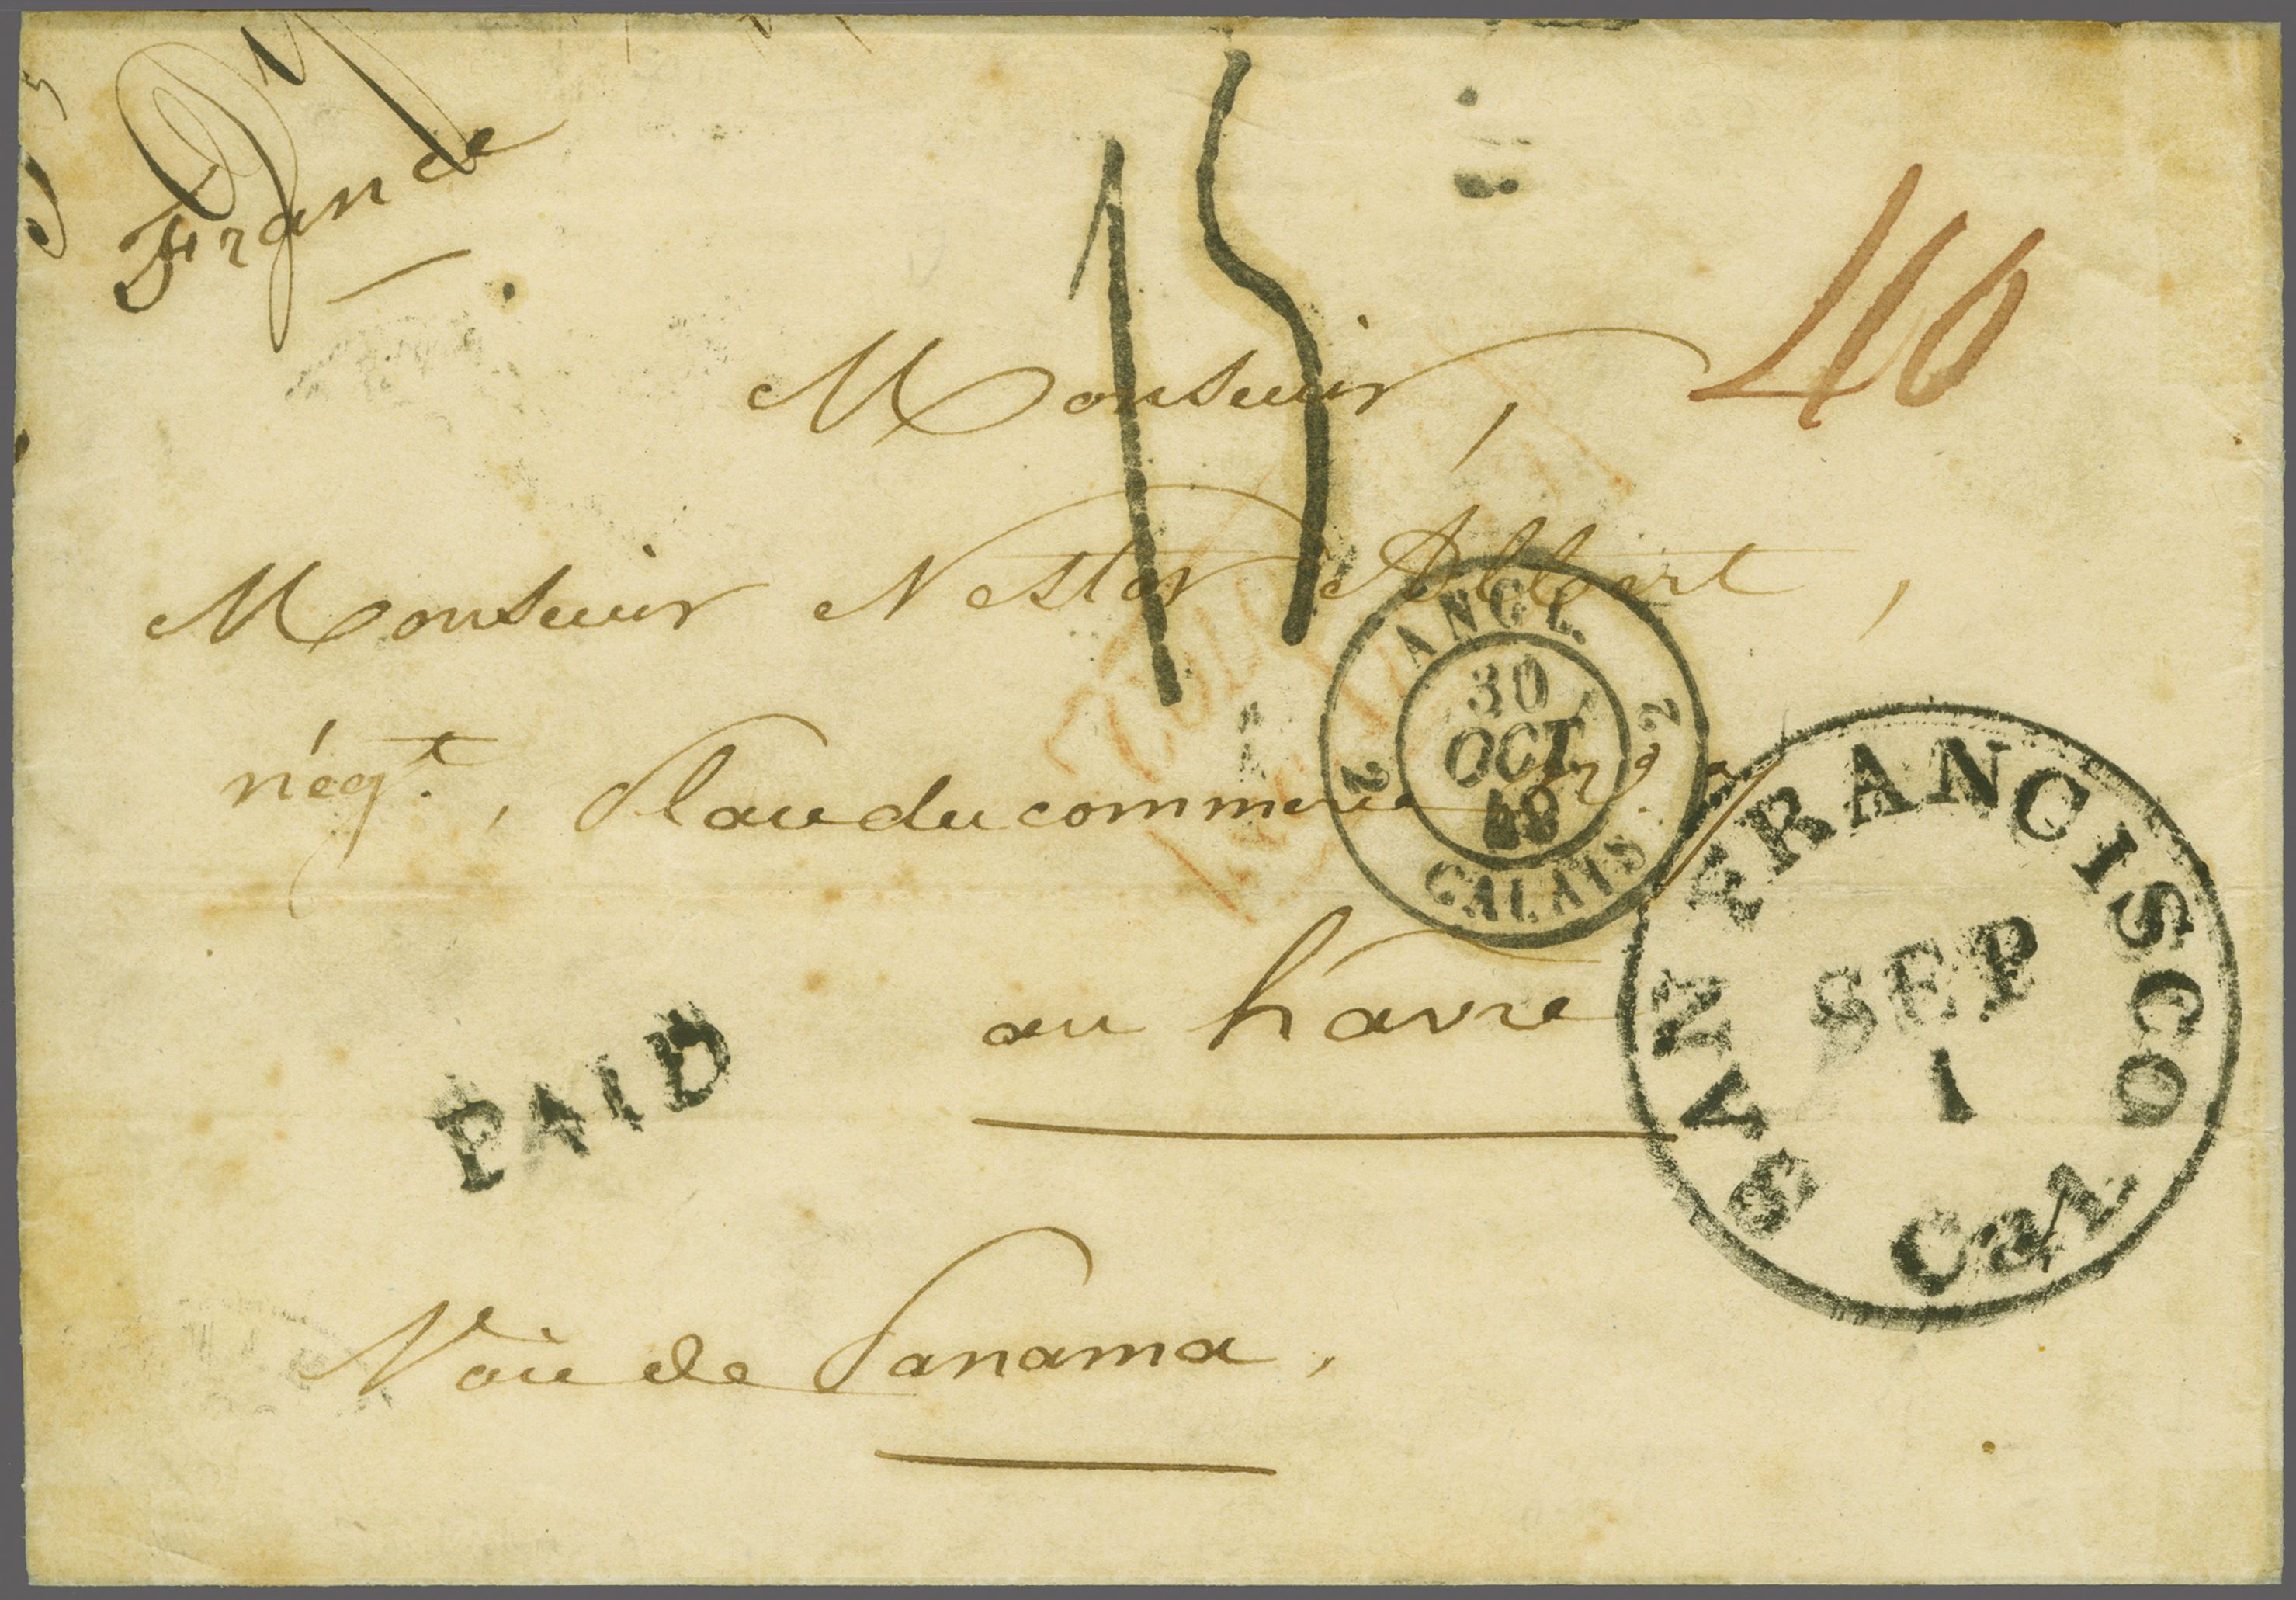 France
15
40
Monsieur,
Monsieur Nestor Albert,
négt., Place du commerce, n°.
ANGL.
30
OCT.
49
CALAIS
2 2
au havre
SAN FRANCISCO
SEP
1
Cal.
PAID
Voie de Panama.